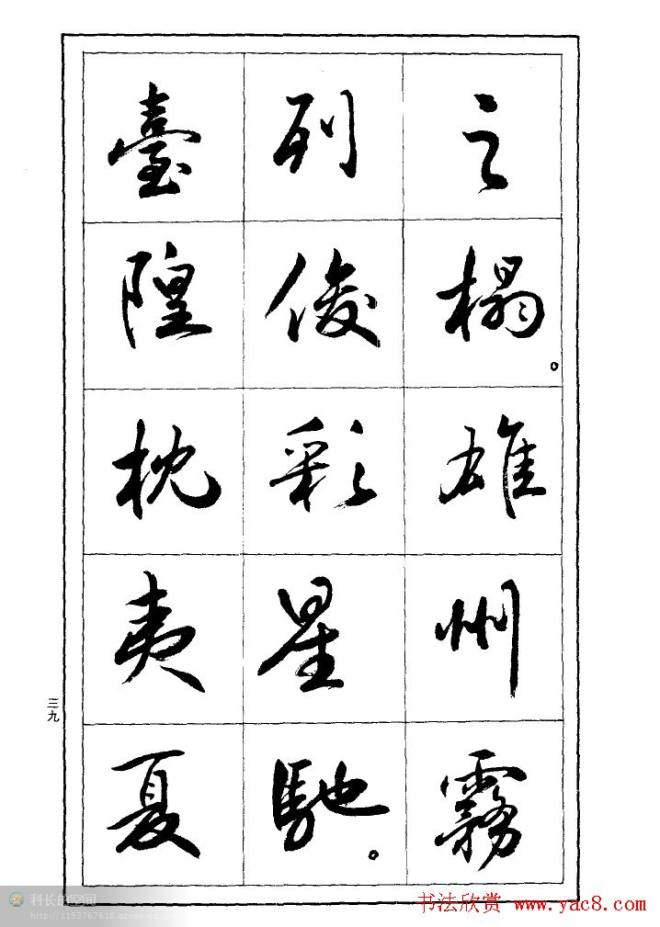 之榻。雄州霧
列俊彩星馳。
臺隍枕夷夏
三九
科长的空间
书法欣赏 www.yac8.com